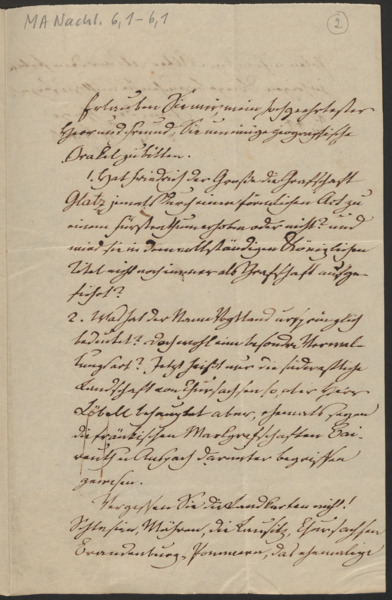 MA Nachl. 6,1–6,1
2
Erlauben Sie mir, mein hochgeehrtester
Herr und Freund, Sie um einige geographische
Orakel zu bitten.
1. Hat Friedrich der Große die Grafschaft
Glatz jemals durch einen förmlichen Act zu
einem Fürstenthum erhoben oder nicht? und
wird sie in dem vollständigen Königlichen
Titel nicht noch immer als Grafschaft aufge-
führt?
2. Was hat der Name Vogtland ursprünglich
bedeutet? Doch wohl eine besondre Verwal-
tungsart? Jetzt heißt nur die südwestliche
Landschaft von Chursachsen so, aber Herr
Löbell behauptet aber, ehemals seyen
die fränkischen Markgrafschaften Bai-
reuth u Ansbach darunter begriffen
gewesen.
Vergessen Sie die Landkarten nicht!
Schlesien, Mähren, die Lausitz, Chursachsen
Brandenburg, Pommern, das ehemalige